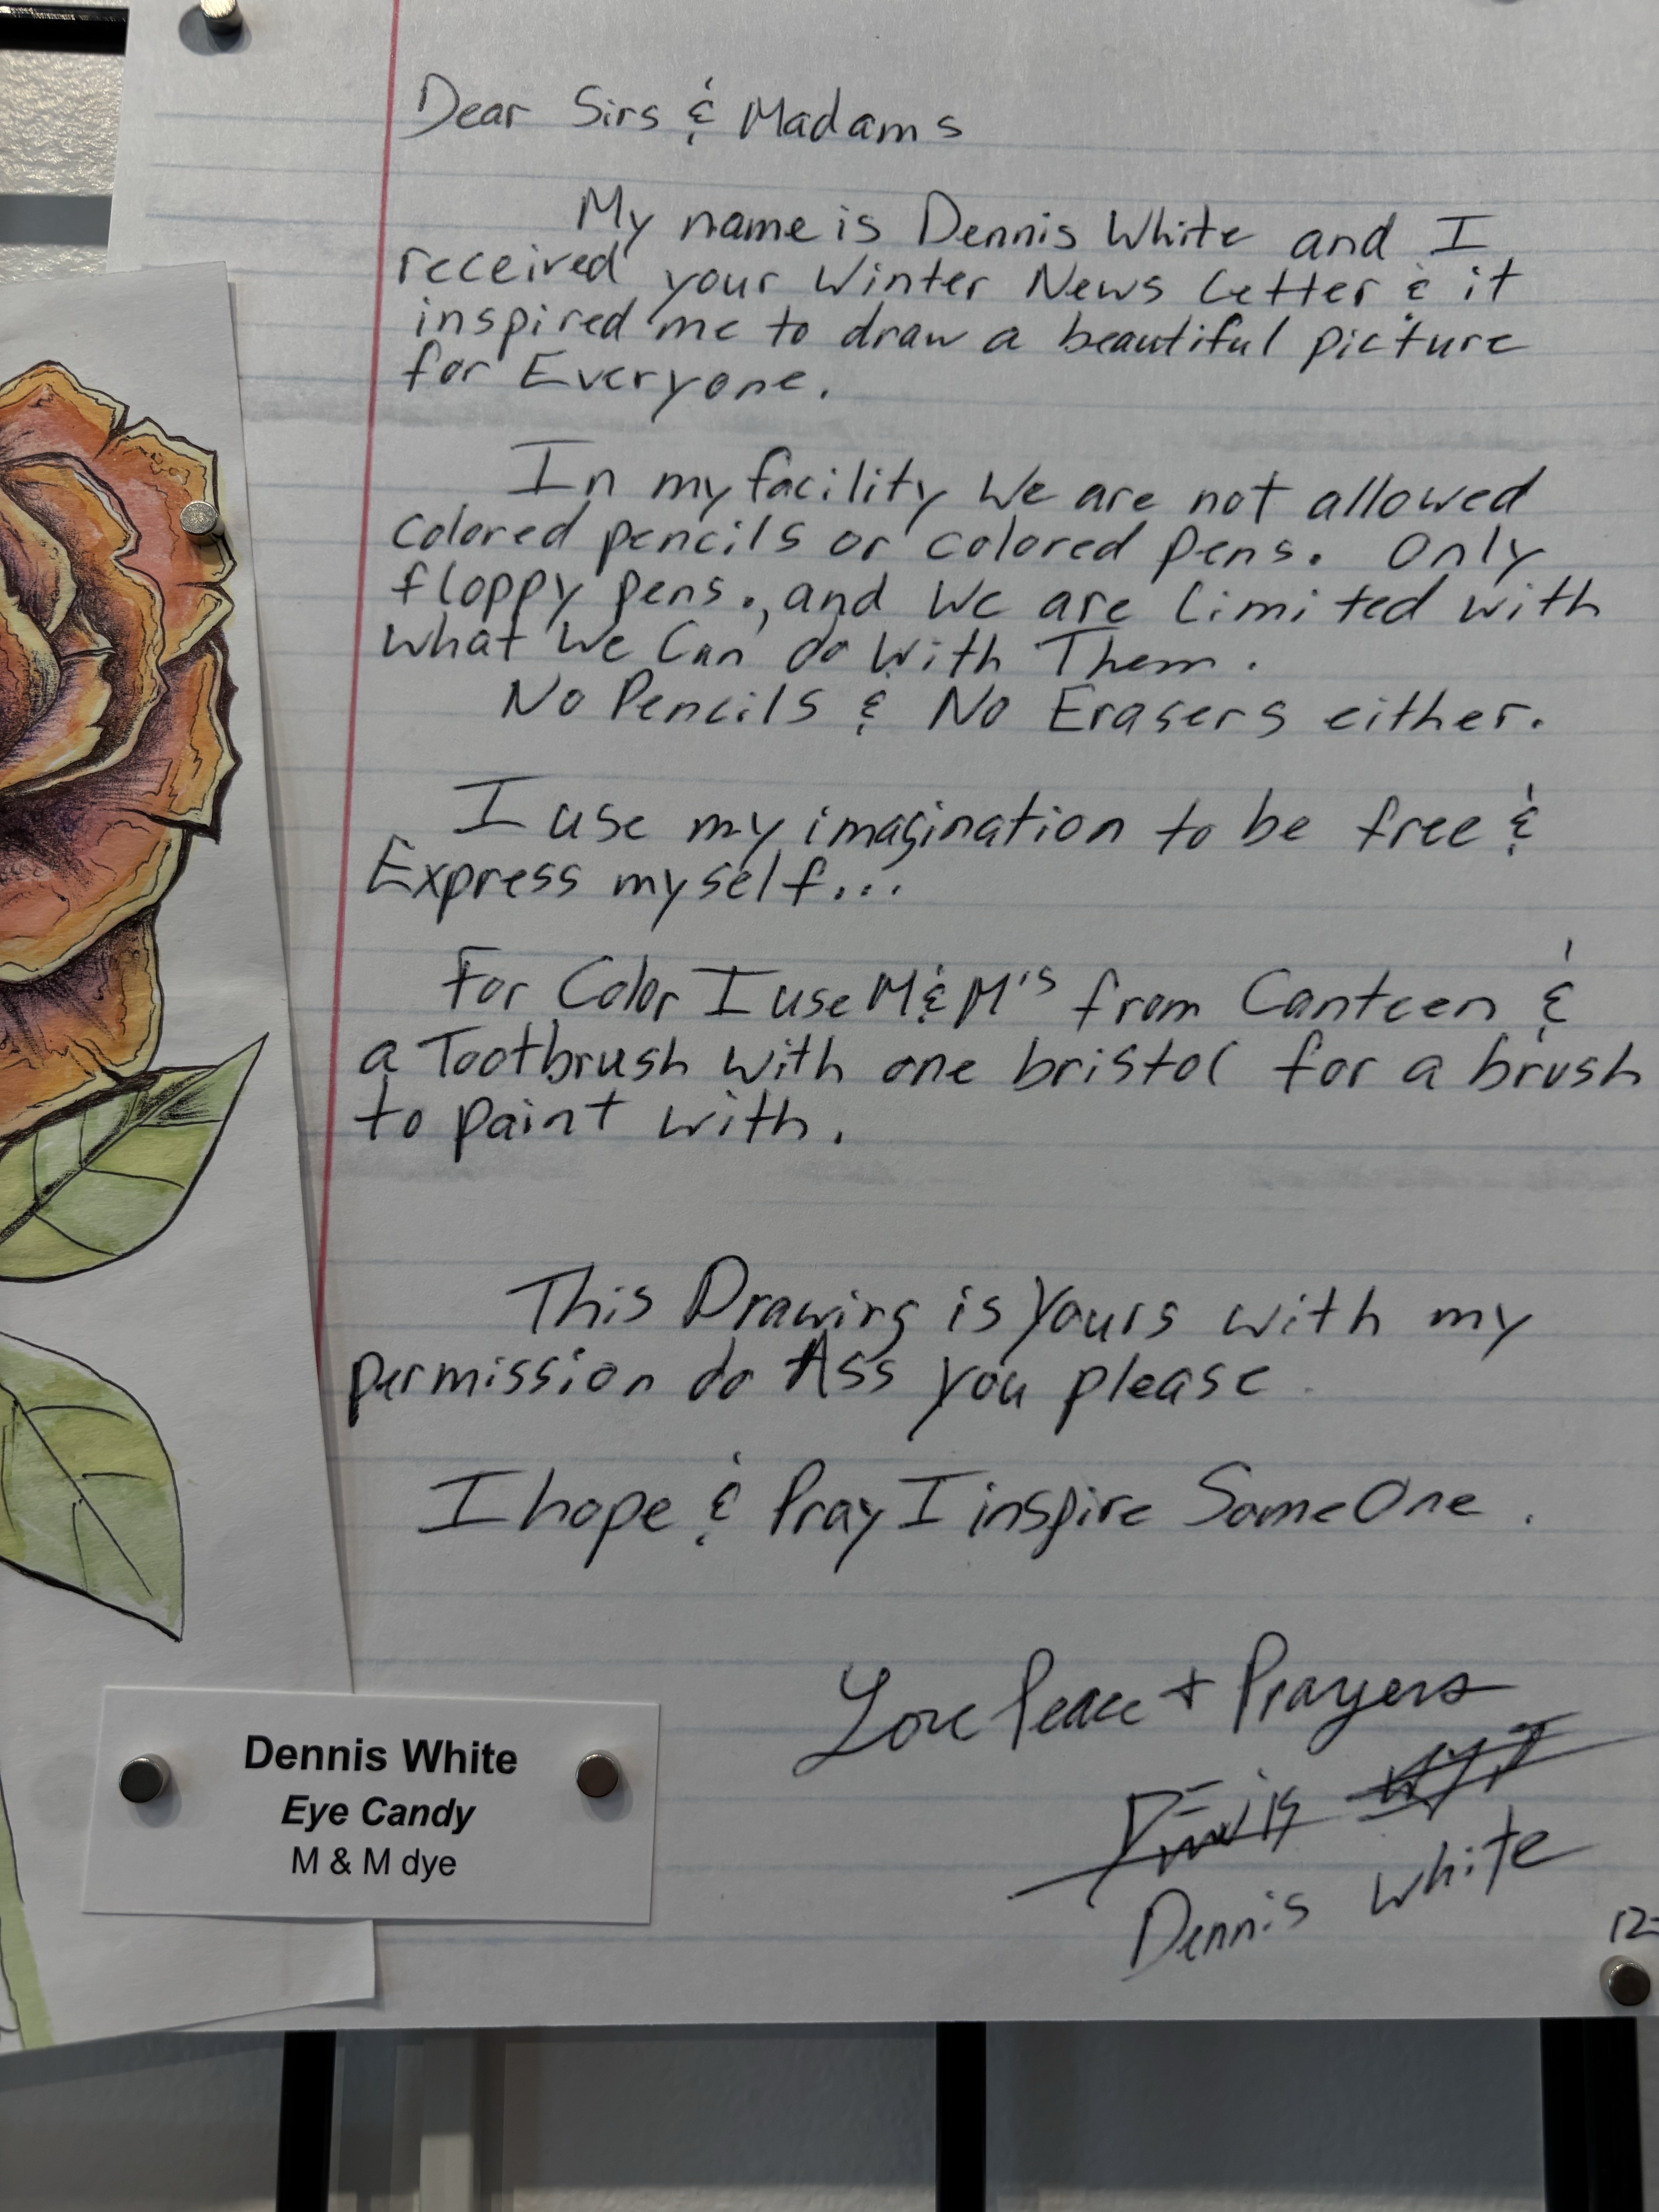 Dear Sirs & Madams
My name is Dennis White and I
received your Winter News Letter & it
inspired me to draw a beautiful picture
for Everyone.
In my facility We are not allowed
Colored pencils or colored pens. Only
floppy pens., and We are limited with
what We Can do With Them.
No Pencils & No Erasers either.
I use my imagination to be free &
Express myself...
For Color I use M&M's from Canteen &
a Tootbrush with one bristol for a brush
to paint with.
This Drawing is Yours with my
permission do Ass you please.
I hope & Pray I inspire SomeOne.
Love Peace + Prayers
Dennis White
12-
Dennis White
Eye Candy
M & M dye